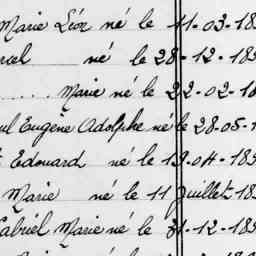 Marie Léon né le 11-03-18
rcel né le 28-12-18
..... Marie né le 22-02-18
ul Eugène Adolphe né le 28-05-1
Edouard né le 13-04-185
Marie né le 11 Juillet 18
Gabriel Marie né le 31-12-185